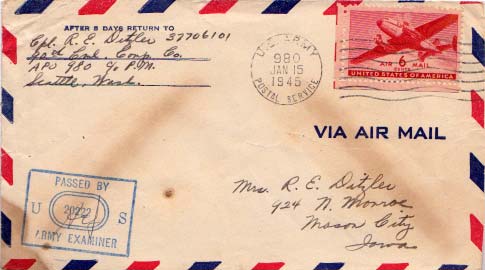 AFTER 5 DAYS RETURN TO
Cpl. R. E. Ditzler 37706101
Cml. Comp. Co.
APO 980 c/o P.M.
Seattle, Wash.
U.S. ARMY
980
JAN 15
1945
POSTAL SERVICE
AIR 6 MAIL
CENTS
UNITED STATES OF AMERICA
VIA AIR MAIL
PASSED BY
U 20222 S
ARMY EXAMINER
Mrs. R. E. Ditzler
924 N. Monroe
Mason City
Iowa